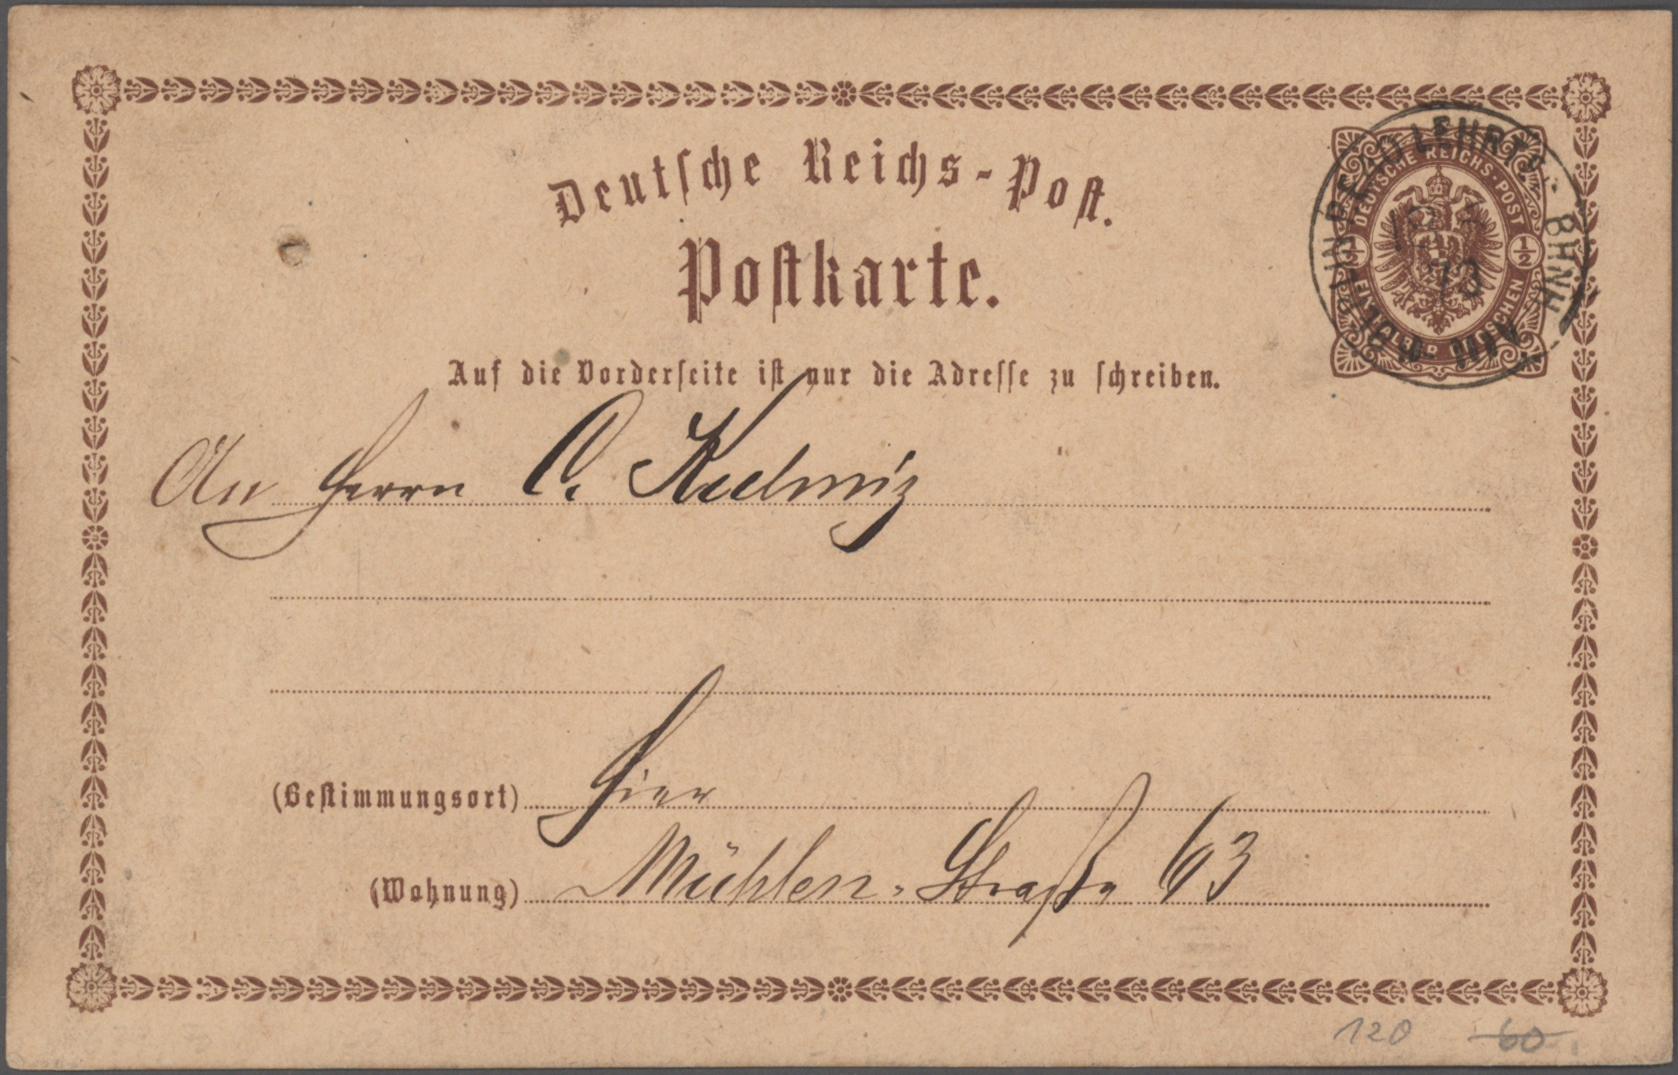 Deutsche Reichs-Post.
Postkarte.
DEUTSCHE REICHS-POST
1/2 1/2
GROSCHEN
LEHRT. BHNH
73
Auf die Vorderseite ist nur die Adresse zu schreiben.
An Herrn C. Kulmiz
(Bestimmungsort) Hier
(Wohnung) Mühlen-Straße 63
120 60